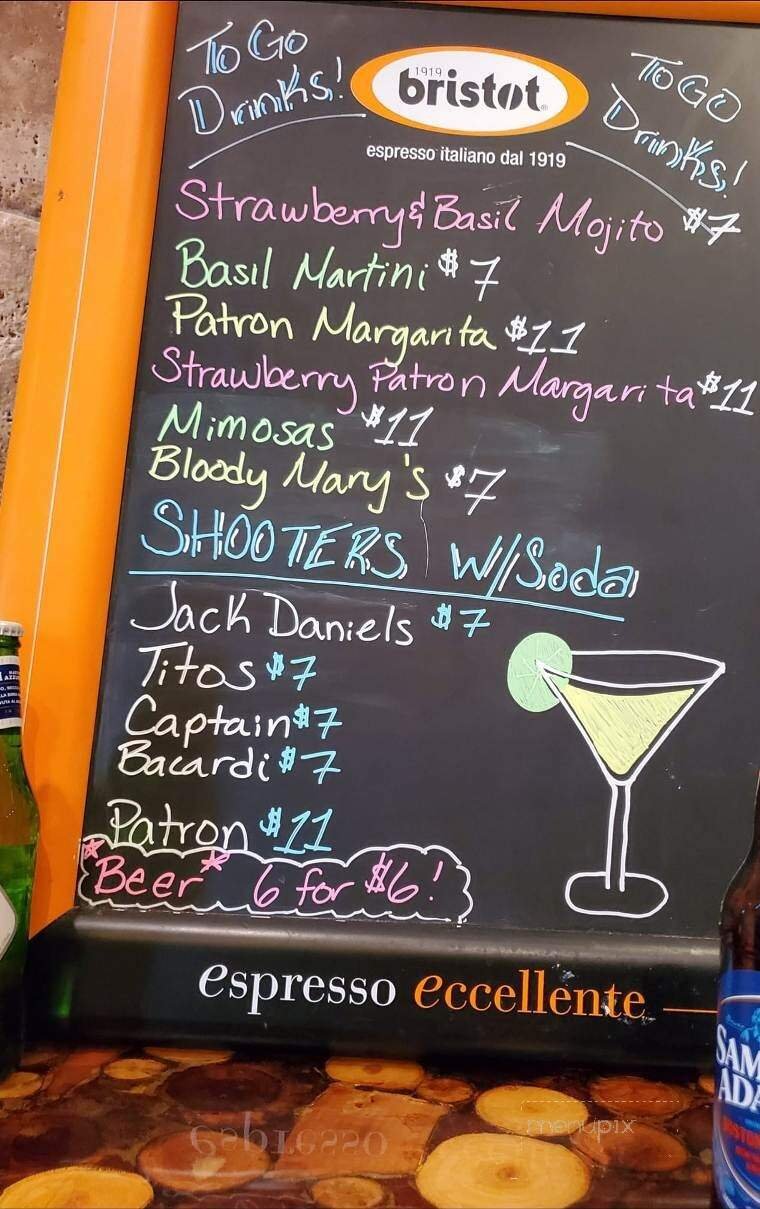 To Go
Drinks!
1919
bristot
espresso italiano dal 1919
TO GO
Drinks!
Strawberry & Basil Mojito $7
Basil Martini $7
Patron Margarita $11
Strawberry Patron Margarita $11
Mimosas $11
Bloody Mary's $7
SHOOTERS W/Soda
Jack Daniels $7
Titos $7
Captain $7
Bacardi $7
Patron $11
*Beer* 6 for $6!
espresso eccellente
SAM
ADA
espresso
menupix